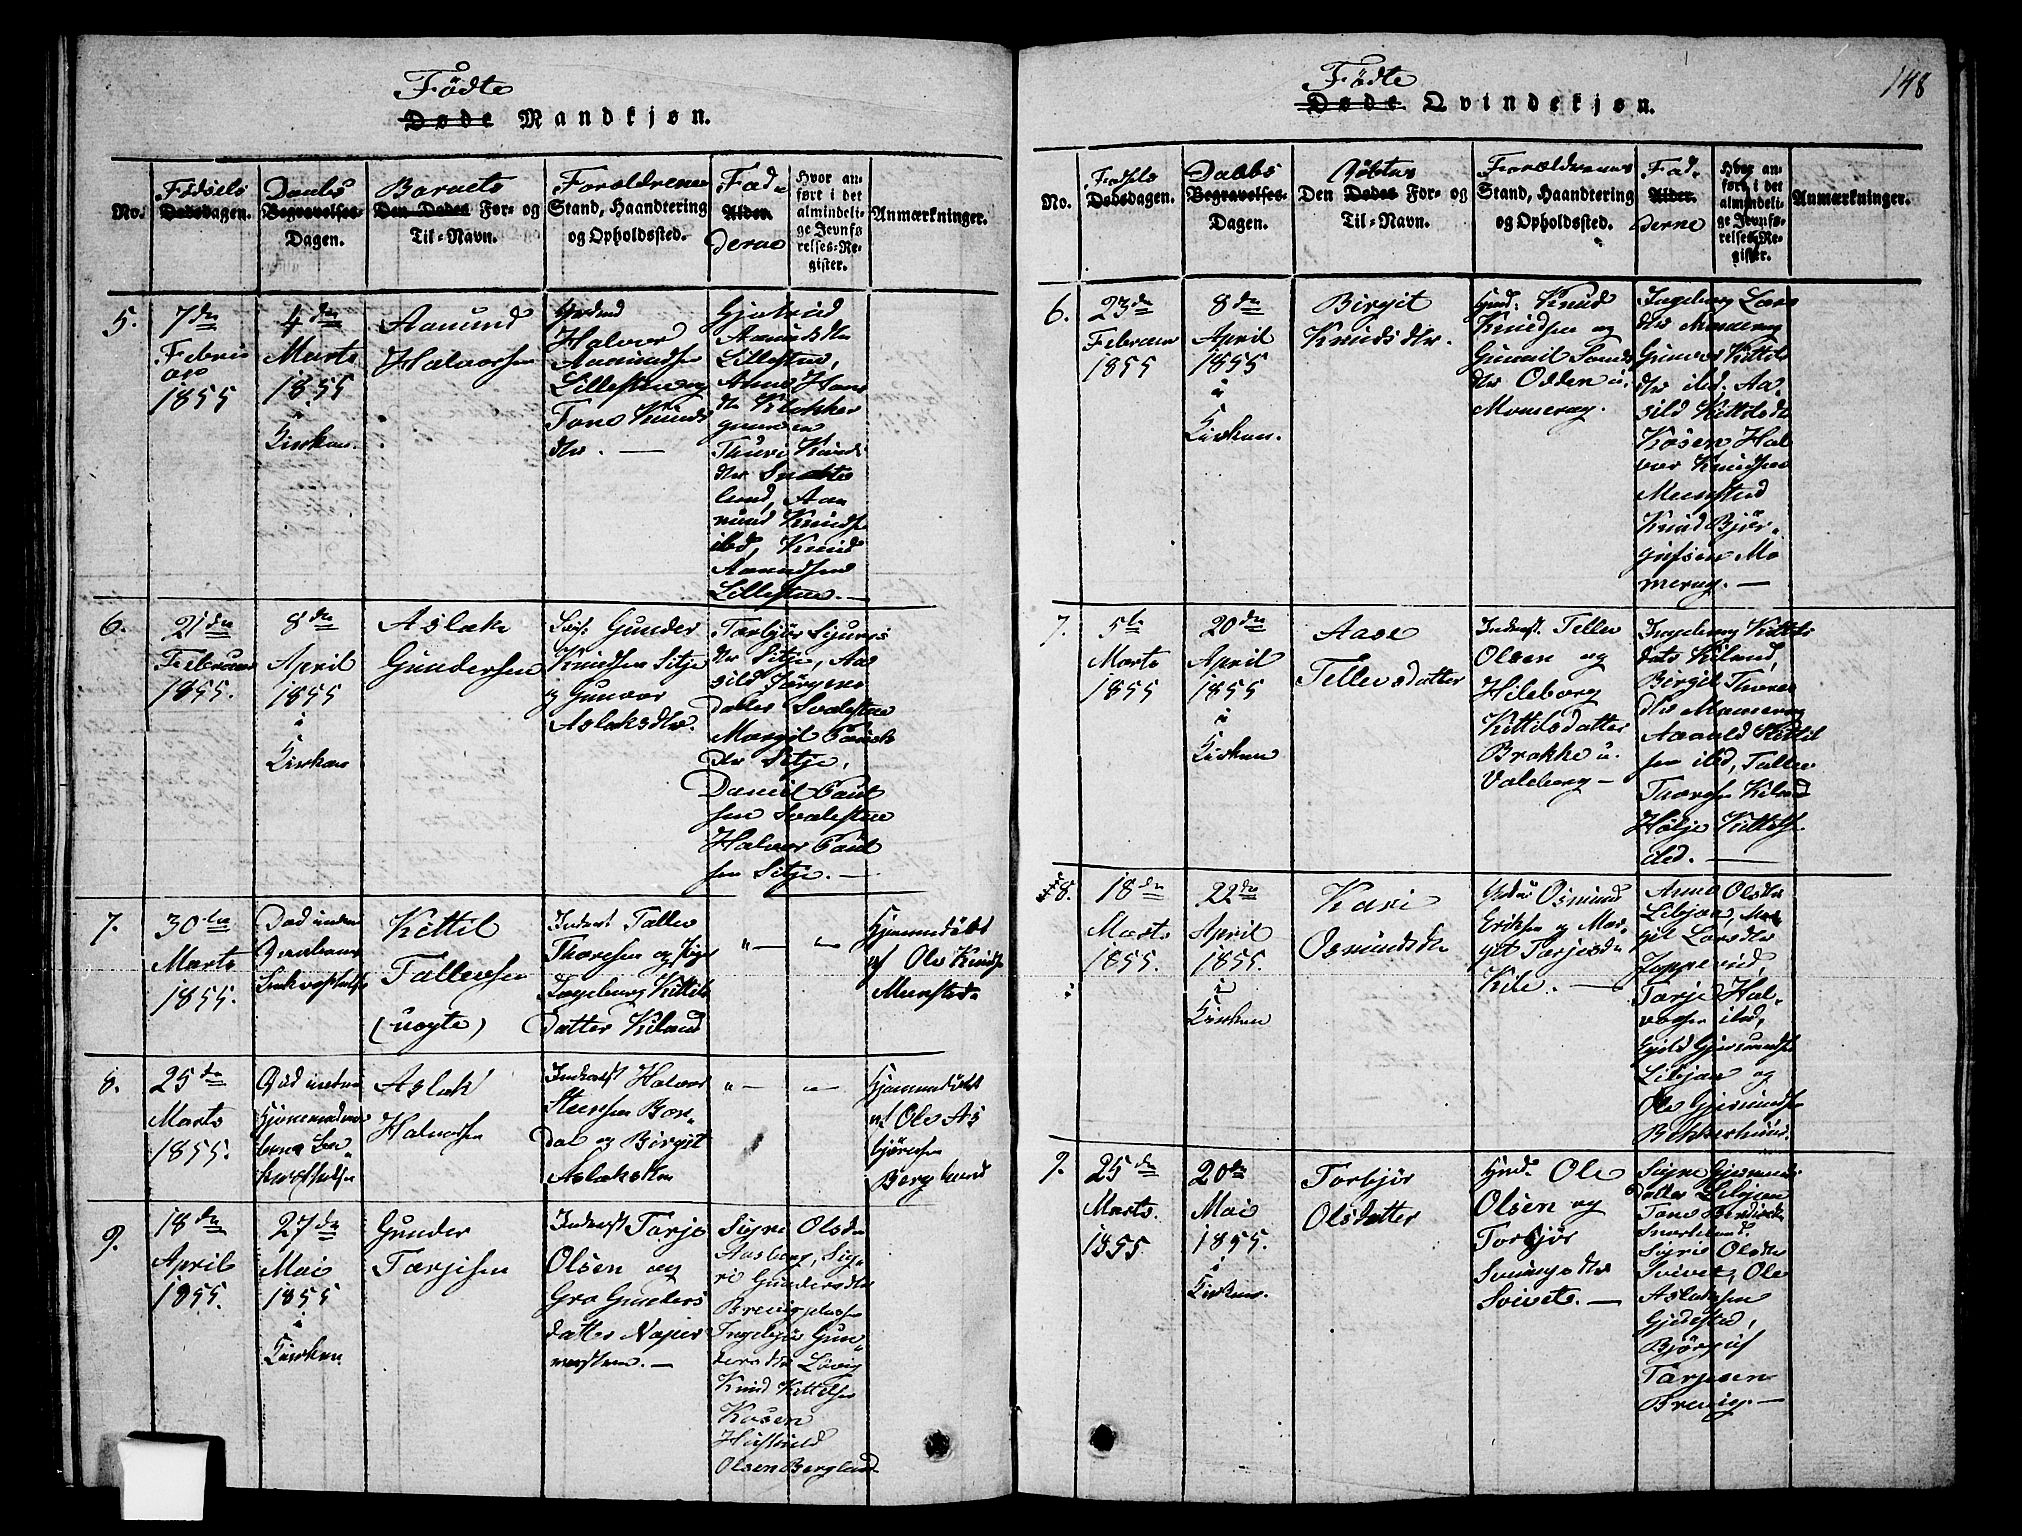 Fødte
Døde Mandkjøn.
No.
Fødsels
Dødsdagen.
Daabs
Begravelses-
Dagen.
Barnets
Den Dødes For- og
Til-Navn.
Forældrenes
Stand, Haandtering
og Opholdssted.
Fad-
Alder.
derne
Hvor an-
ført i det
almindeli-
ge Jevnfø-
relses-Re-
gister.
Anmærkninger.
5.
7de
Febru
ar
1855
4de
Marts
1855
i
Kirken.
Aanund
Halvorsen
Halvor
Aanundsen
Lillestue og
Tone Knuds
dtr. —
Gjøtrid
Aanundsdtr
Lillestue,
Anne Hans
dtr Klokker
gaarden
Thuri Knuds
dtr Snarte
lund, Aa
nund Knudse
ibd, Knud
Aanundsen
Lillestue. —
6.
21de
Februar
1855.
8de
April
1855
i
Kirken
Aslak
Gundersen
Gunder
Knudsen Sitje
og Gunvor
Aslaksdtr.
Torbjør Sjurs
dtr Sitje, Aa
sild Jørgens
datter Svalestue
Margit Pauls
dtr Sitje,
Daniel Paul
sen Svalestue
Halvor Paul
sen Sitje. —
7.
30te
Marts
1855.
Død uden
Kittil
Tallevsen
(uægte)
Inderst Tallev
Thorsen og Pige
Ingeborg Kittils
datter Kiland
" —
" —
Hjemmedøbt
af Ole Knudse
Munsted
8.
25de
Marts
1855.
Død uden
Aslak
Halvorsen
Inderst Halvor
Steensen Bor-
dal og Birgit
Aslaksdtr
" —
" —
Hjemmedøbt
af Ole As
bjørnsen
Berglund
9.
18de
April
1855.
27de
Mai
1855
i
Kirken
Gunder
Tarjesen
Inderst Tarje
Olsen og
Gro Gunders
datter Naper
Signe Olsdtr
Aasberg, Sig-
ri Gundersdtr
Ingebjør Gun-
dersdtr
Knud Kittelsen
Kosen
Olsen Berglund
148
Fødte
Døde Qvindekjøn.
No.
Fødsels
Dødsdagen.
Daabs
Begravelses-
Dagen.
Døbtes
Den Dødes For- og
Til-Navn.
Forældrenes
Stand, Haandtering
og Opholdssted.
Fad-
Alder.
derne
Hvor an-
ført i det
almindeli-
ge Jevnfø-
relses-Re-
gister.
Anmærkninger.
6.
23de
Februar
1855
8de
April
1855
i
Kirken.
Birgit
Knudsdtr.
Knud
Knudsen og
Gunnil Tords
dtr Odden u.
Momerag.
Ingeborg Lars
dtr Momerag
Gunvor Kittils
dtr ibd. Aa-
sild Kittilsdtr
Kosen, Hal
vor Knudsen
Munsted
Knud Bjør-
gufsen Mo
merag. —
7.
5te
Marts
1855
20de
April
1855
i
Kirken
Aase
Tellevsdatter
Inderst. Tellev
Olsen og
Hileborg
Kittilsdatter
Brokke u.
Valeberg —
Ingeborg Kittils
dats Kiland,
Birgit Thores
dtr Momerag
Aanuld Kittil
sen ibd, Tallev
Thorsen Kiland
Hølje Kittelse
ibd. —
8.
18de
Marts
1855.
22de
April
1855.
i
Kirken
Kari
Osmundsdtr
Osmund
Eriksen og Mar-
git Tarjesdtr
Kile. —
Anne Olsdtr
Libjan, Mar
git Larsdtr
Joppevid,
Tarje Hal-
vorsen ibd,
Egild Gjermundse
Libjan og
Ole Gjermundse
Bekkerhuus.
9.
25de
Marts.
1855
20de
Mai
1855.
i
Kirken.
Torbjør
Olsdatter
Ole
Olsen og
Torbjør
Sveinungsdtr
Svivet. —
Signe Gjermunds
datter Libjan
Tone
Snartelund.
Sigri Olsdtr
Svivet, Ole
Aslaksen
Gjedested,
Bjørguf
Tarjesen
Breivig. —